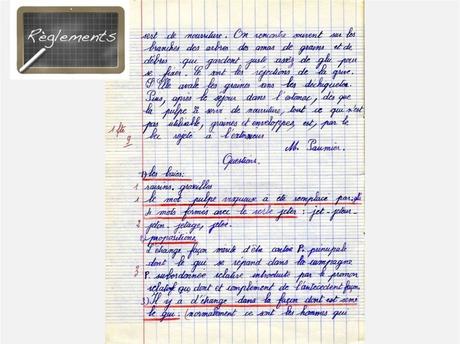 Règlements
sert de nourriture. On rencontre souvent sur les
branches des arbres des amas de grains et de
débris qui gardent juste assez de glu pour
se fixer. Ce sont les réjections de la grive.
Elle avale les graines sans les déchiqueter.
Puis, après le séjour dans l'estomac, dès que
la pulpe a servi de nourriture, tout ce qui n'est
pas utilisable, graines et enveloppes, est, par le
bec rejeté à l'extérieur
M. Paumier.
Questions.
1) les baies:
1 raisins, groseilles
1 le mot pulpe a été remplacé par
4 mots formés avec le verbe jeter: jet -
2 jeton - jetage, jetée.
2) propositions
L'étrange façon mérite d'être contée P. principale
dont le gui se répand dans la campagne
3 P. subordonnée relative introduite par le pronom
relatif qui dont et complément de l'antécédent façon
3) Il y a d'étrange dans la façon dont est semé
le gui: (normalement ce sont les hommes qui